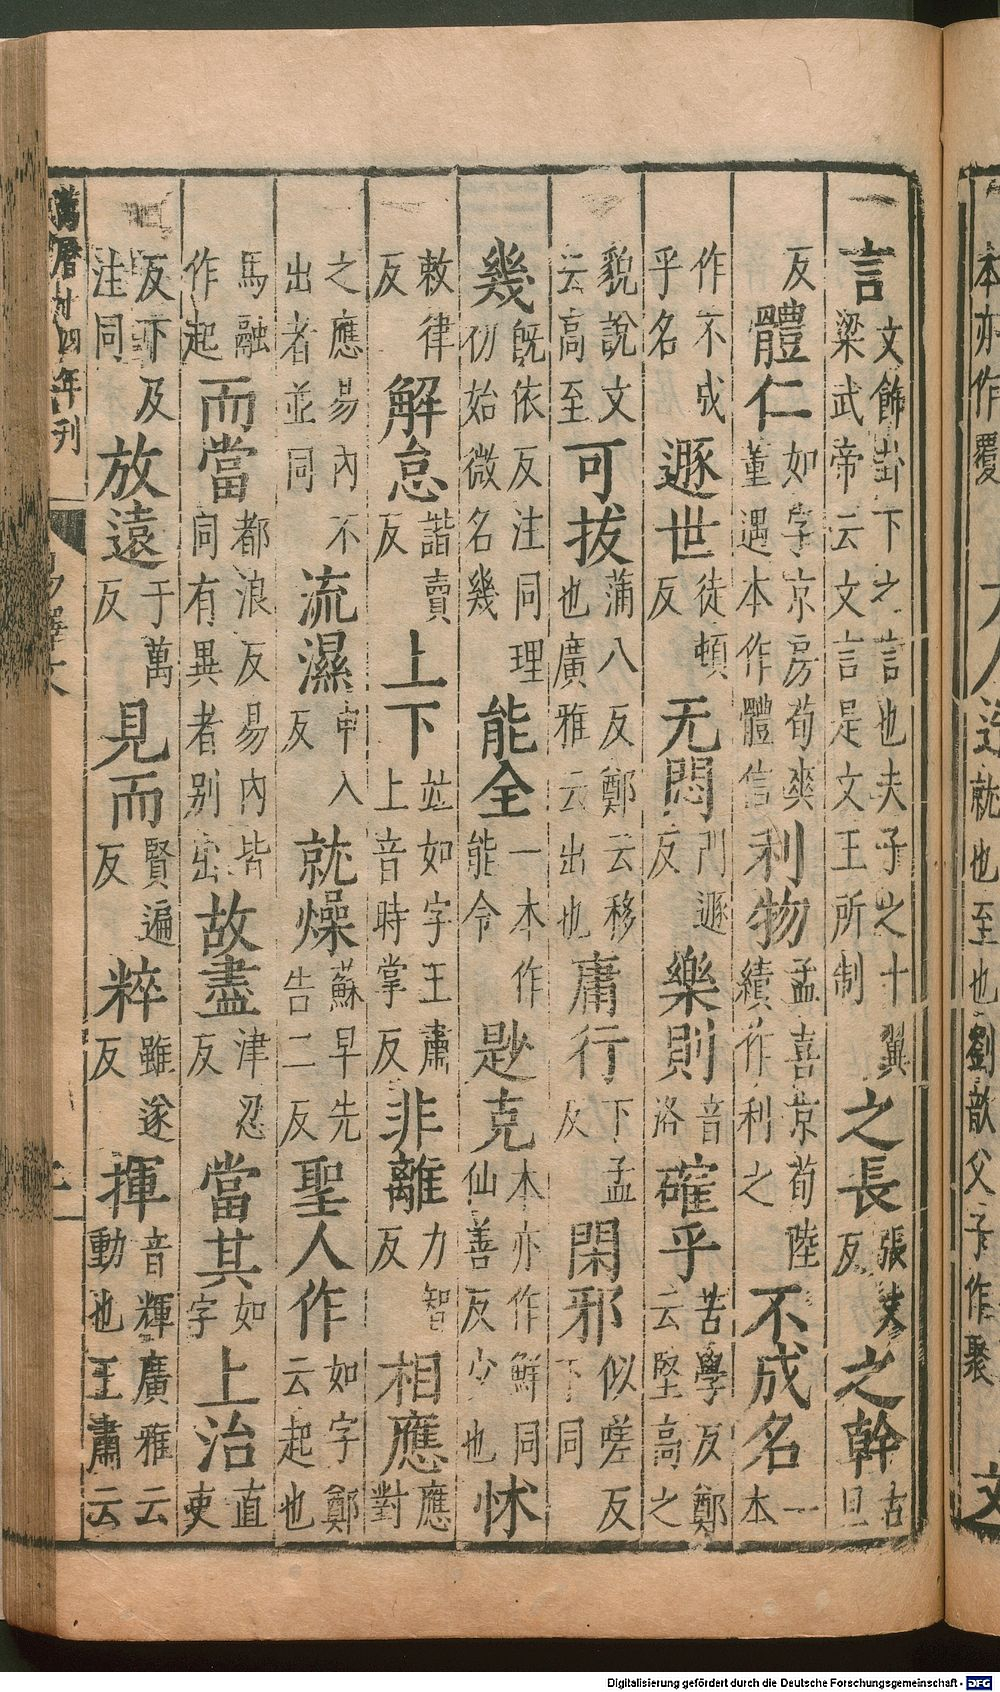 本亦作覆 大人造就也至也劉歆父子作聚 文
言文飾卦下之言也夫子之十翼梁武帝云文言是文王所制之長張丈反之幹古旦
反體仁如字京房荀爽董遇本作體信利物孟喜京荀陸續作利之不成名一本
作不成乎名遯世徒頓反无悶門遯反樂則音洛確乎苦學反鄭云堅高之
貌說文云高至可拔蒲八反鄭云移也廣雅云出也庸行下孟反閑邪似嗟反下同
幾既依反注同理初始微名幾能全一本作能令尟克本亦作鮮同仙善反少也怵
敕律反解怠諧賣反上下並如字王肅上音時掌反非離力智反相應應對
之應易內不出者並同流濕申入反就燥蘇早先告二反聖人作如字鄭云起也
馬融作起而當都浪反易內皆同有異者別出故盡津忍反當其如字上治直吏
反下及注同放遠于萬反見而賢遍反粹雖遂反揮音輝廣雅云動也王肅云
萬曆廿四年刊
Digitalisierung gefördert durch die Deutsche Forschungsgemeinschaft - DFG